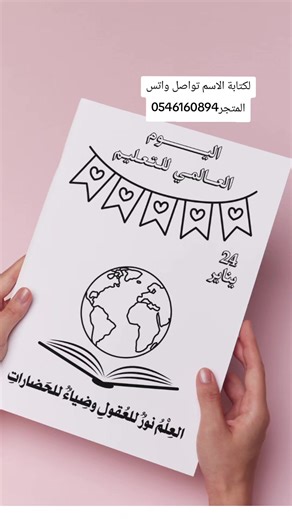 لكتابة الاسم تواصل واتس
المتجر0546160894
اليـــــوم
العـالمـي للتعليم
24
يناير
العِلْمُ نورٌ للعُقولِ وضِياءٌ للحَضاراتِ